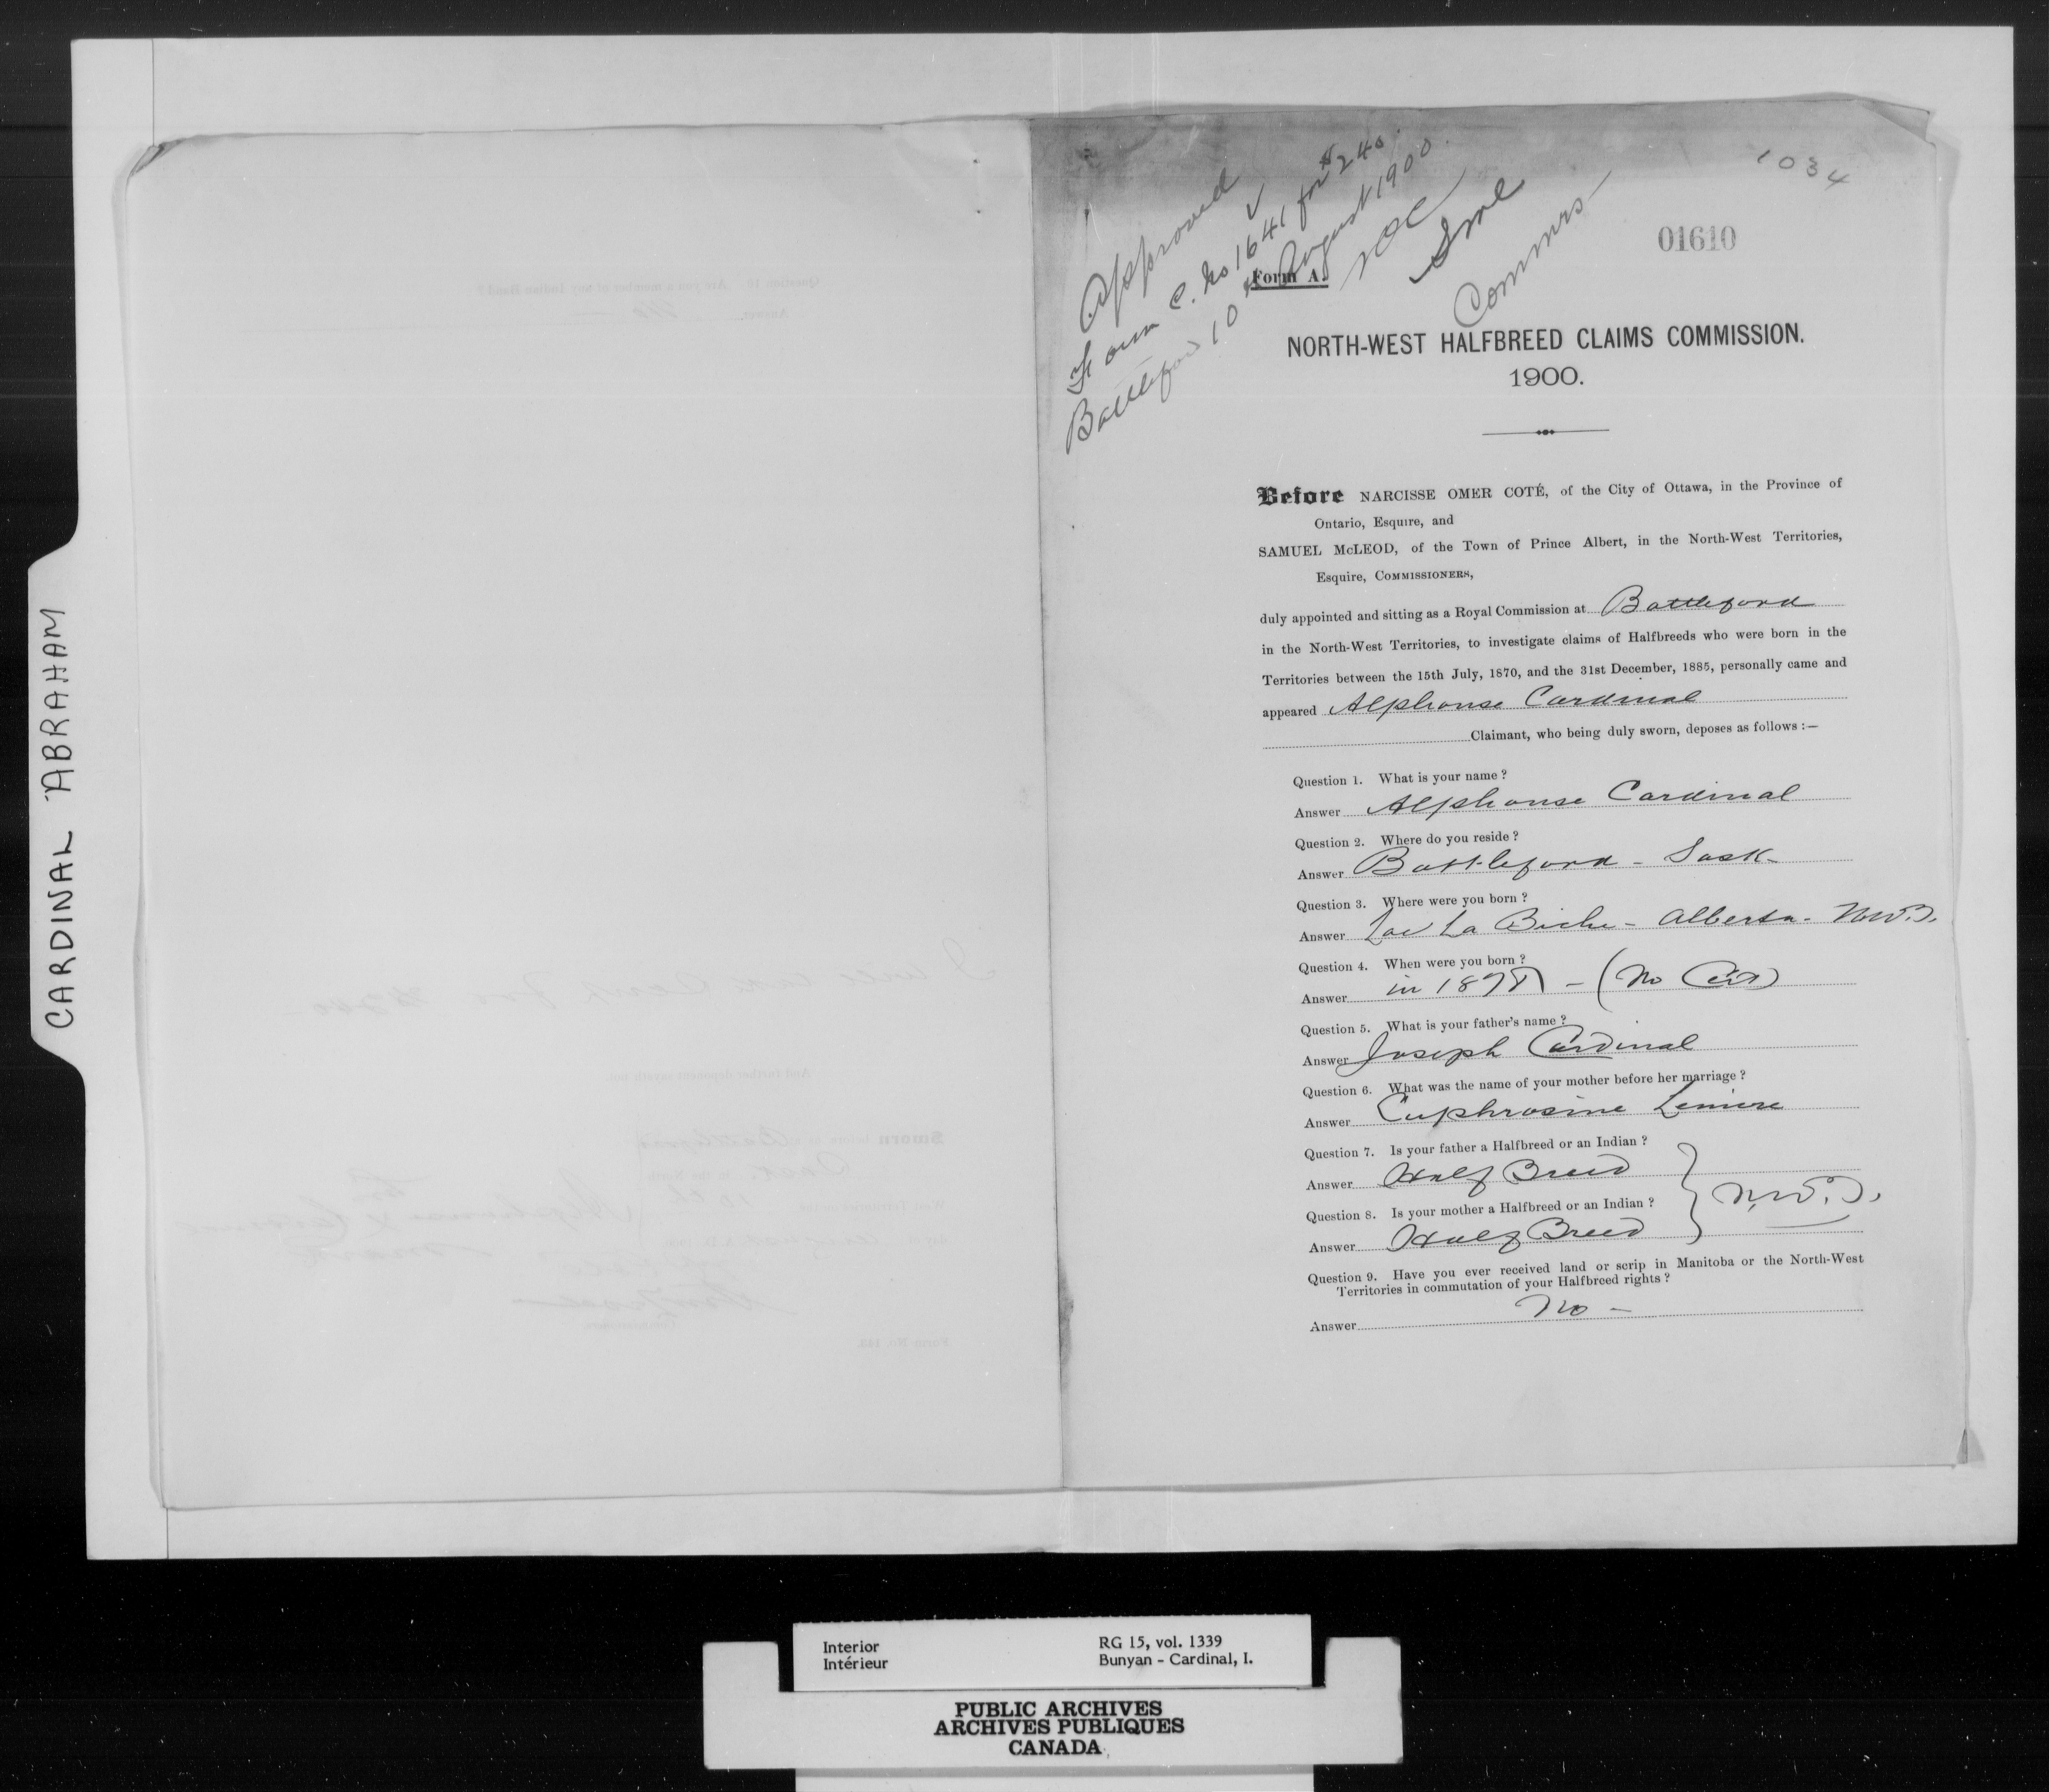 CARDINAL ABRAHAM
1034
01610
Approved
Form C. No 1641 for $240.
Battleford 10th August 1900.
NOC
SML
Commrs
Form A.
NORTH-WEST HALFBREED CLAIMS COMMISSION.
1900.
Before NARCISSE OMER COTÉ, of the City of Ottawa, in the Province of
Ontario, Esquire, and
SAMUEL McLEOD, of the Town of Prince Albert, in the North-West Territories,
Esquire, COMMISSIONERS,
duly appointed and sitting as a Royal Commission at Battleford
in the North-West Territories, to investigate claims of Halfbreeds who were born in the
Territories between the 15th July, 1870, and the 31st December, 1885, personally came and
appeared Alphonse Cardinal
Claimant, who being duly sworn, deposes as follows :—
Question 1. What is your name ?
Answer Alphonse Cardinal
Question 2. Where do you reside ?
Answer Battleford - Sask-
Question 3. Where were you born ?
Answer Lac La Biche - Alberta - N.W.T.
Question 4. When were you born ?
Answer in 1878 - (No Cert)
Question 5. What is your father's name ?
Answer Joseph Cardinal
Question 6. What was the name of your mother before her marriage ?
Answer Euphrosine
Question 7. Is your father a Halfbreed or an Indian ?
Answer Half Breed
N.W.T.
Question 8. Is your mother a Halfbreed or an Indian ?
Answer Half Breed
Question 9. Have you ever received land or scrip in Manitoba or the North-West
Territories in commutation of your Halfbreed rights ?
Answer No -
Interior
Intérieur
RG 15, vol. 1339
Bunyan - Cardinal, I.
PUBLIC ARCHIVES
ARCHIVES PUBLIQUES
CANADA